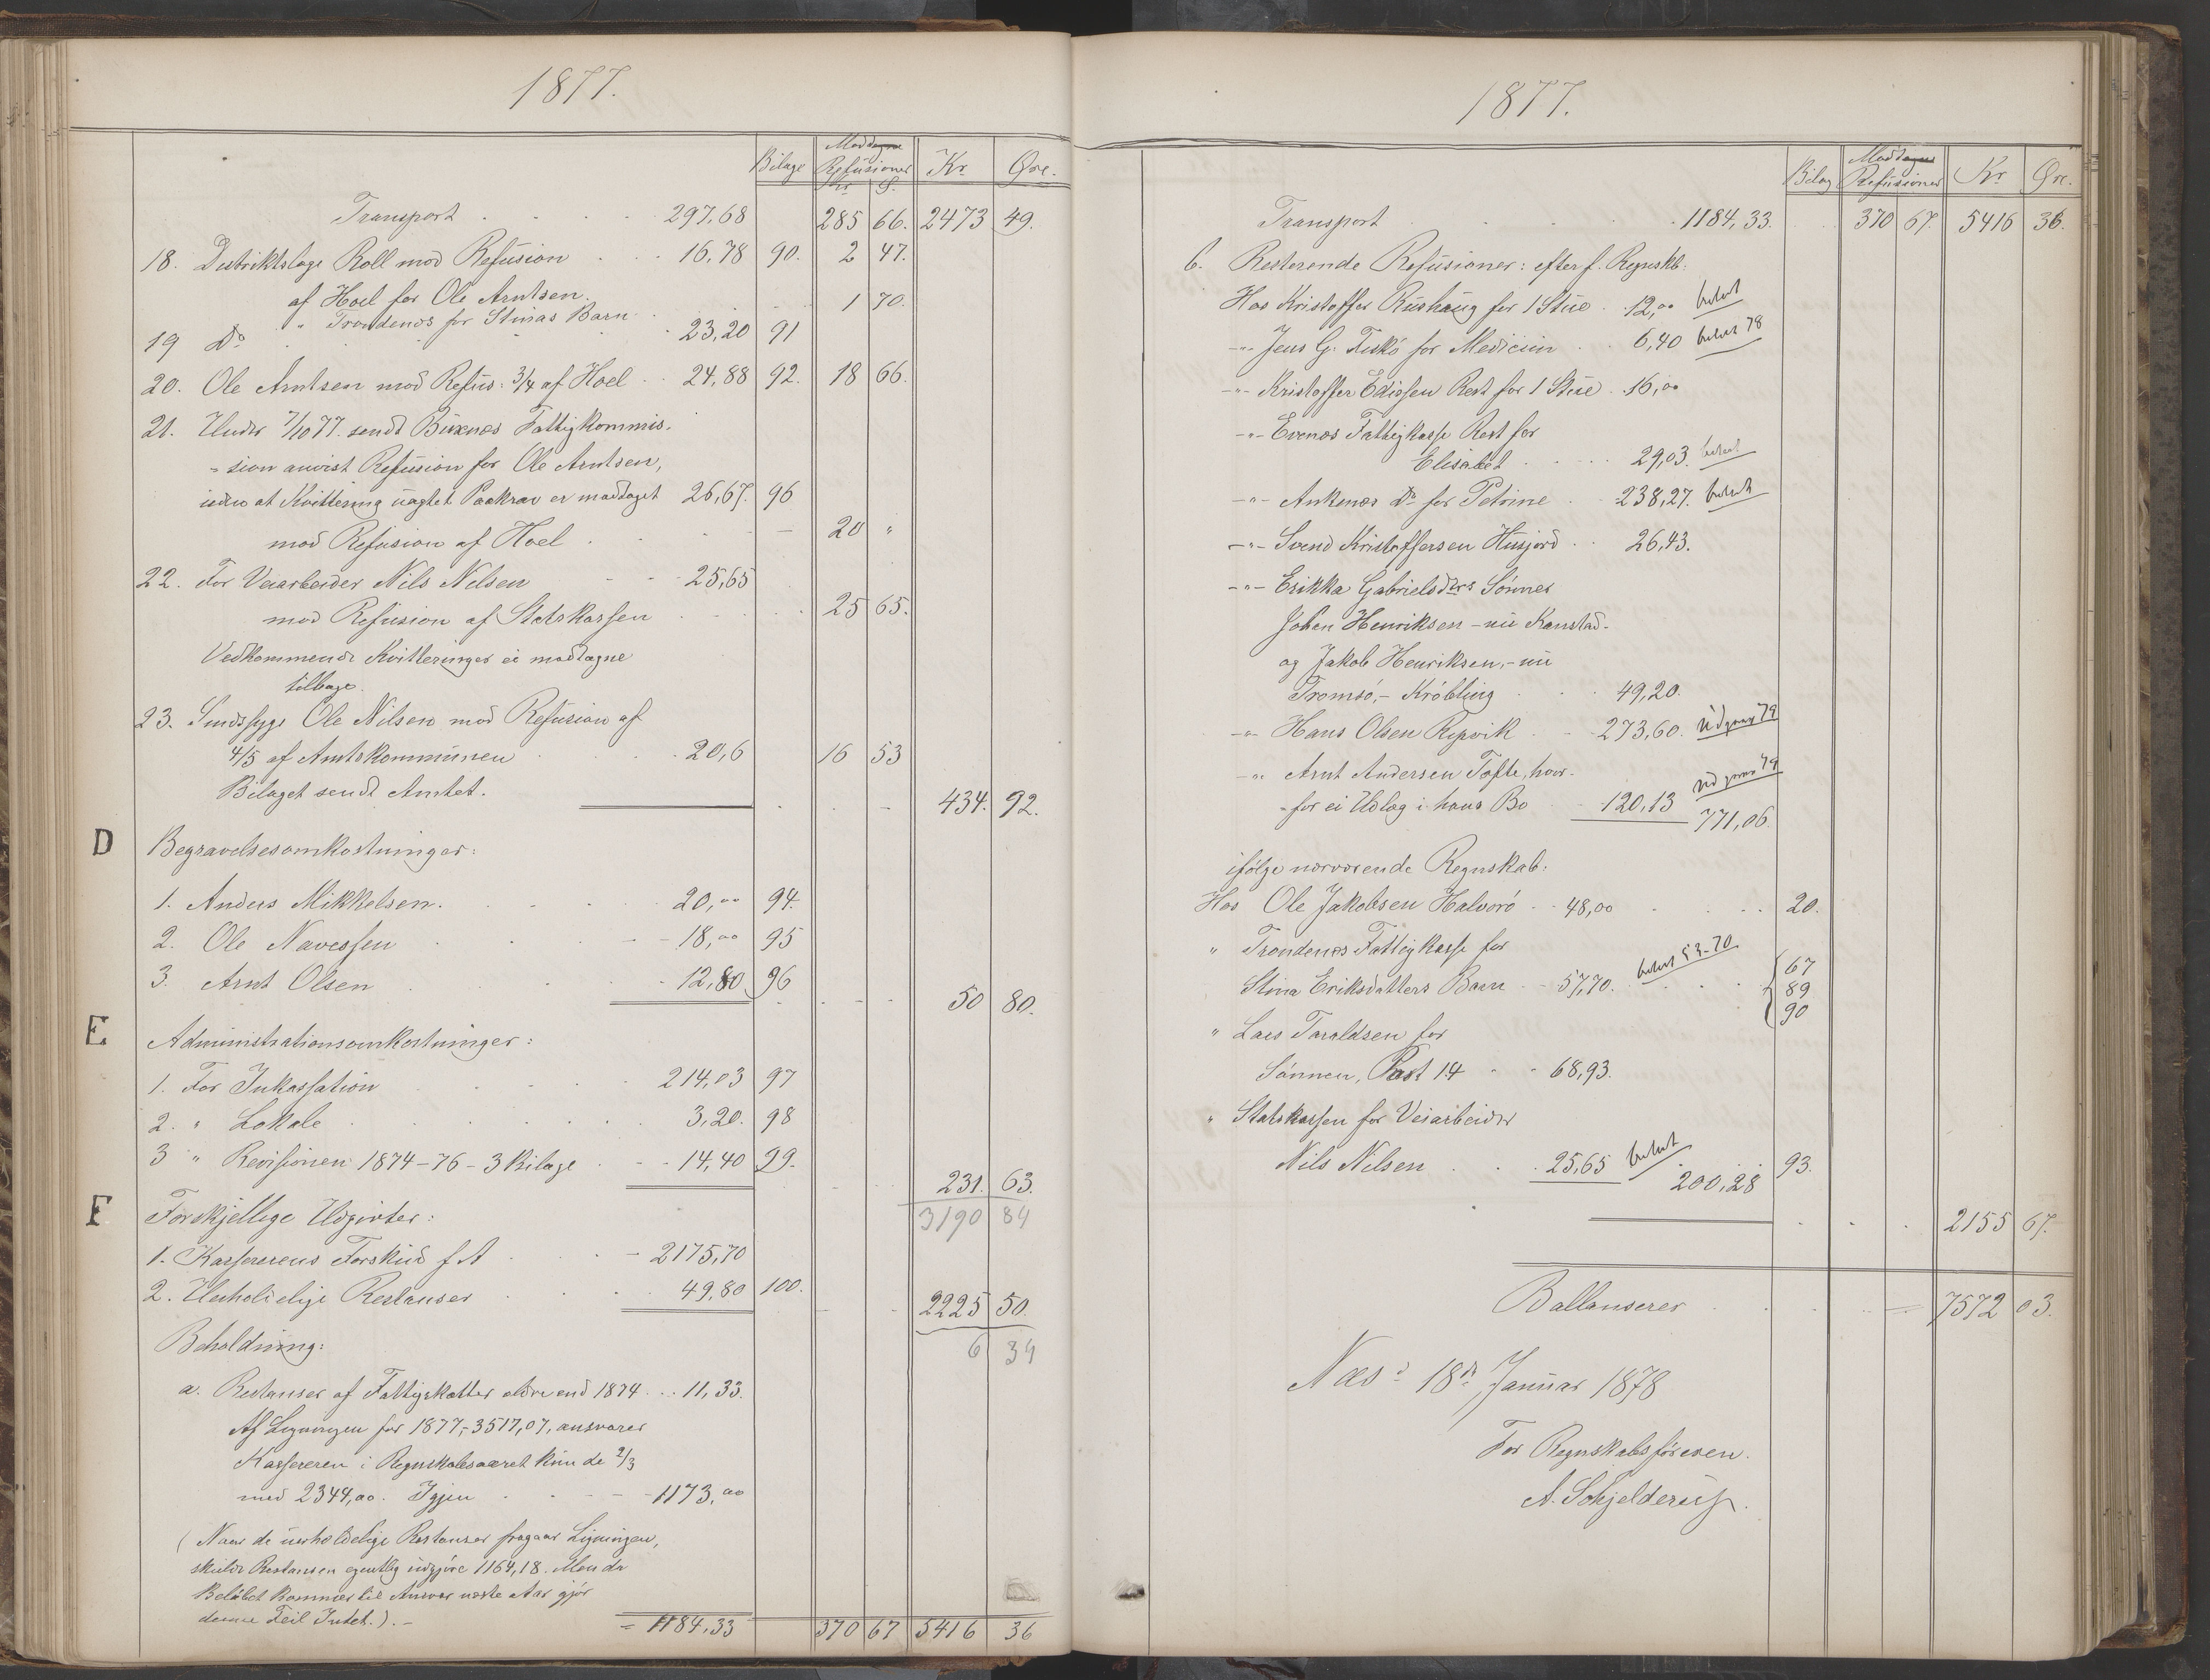 1877.
Bilage Modtagne Refusioner Kr Øre.
Kr S.
Transport 297,68 285 66. 2473 49.
18. Distriktslæge Roll mod Refusion 16,78 90. 2 47.
af Hoel for Ole Arntsen. 1 70.
19 Do " Trondenæs for Stinas Barn 23,20 91
20. Ole Arntsen mod Refus: 3/4 af Hoel 24,88 92. 18 66.
21. Under 7/10 77. sendt Buxnæs Fattigkommis-
-sion anvist Refusion for Ole Arntsen,
uden at Kvittering uagtet Paakrav er modtaget 26,67. 96
mod Refusion af Hoel 20 "
22. For Veiarbeider Nils Nilsen 25,65
mod Refusion af Statskassen 25 65.
Vedkommende Kvitteringer ei modtagne
tilbage.
23. Sindssyge Ole Nilsen mod Refusion af
4/5 af Amtskommunen 20,6 16 53
Bilaget sendt Amtet. 434. 92.
D Begravelsesomkostninger:
1. Anders Mikkelsen. 20,00 94.
2. Ole Navessen 18,00 95
3. Arnt Olsen 12,80 96
50 80.
E Administrationsomkostninger:
1. For Inkassation 214,03 97
2. " Lokale 3,20. 98
3 " Revisionen 1874-76 - 3 Bilage 14,40 99.
231. 63.
F Forskjellige Udgivter: 3190 84
1. Kassererens Forskud f A 2175,70
2. Uerholdelige Restanser 49,80 100.
2225 50.
Beholdning: 6 34
a. Restanser af Fattigskatter ældre end 1874 11,33.
Af Ligningen for 1877,-3517,07, ansvarer
Kassereren i Regnskabsaaret kun de 2/3
med 2344,00. Igjen 1173,00
(Naar de uerholdelige Restanser fragaar Ligningen,
skulde Restansen egentlig udgjøre 1164,18. Men da
Beløbet kommer til Ansvar næste Aar gjør
denne Feil Intet.). -
= 1184,33 370 67 5416 36
1877.
Bilag Modtagne Refusioner Kr Øre.
Transport 1184,33. 370 67. 5416 36.
b. Resterende Refusioner: efter f. Regnskb:
Hos Kristoffer Rushaug for 1 Stue 12,00 betalt
-"- Jens G. Fiskø for Medicin 6,40 betalt 78
-"- Kristoffer Ediassen Rest for 1 Stue 16,00
-"- Evenæs Fattigkasse Rest for
Elisabet 29,03. betalt
-"- Ankenæs Do for Petrine 238,27. betalt
-"- Svend Kristoffersen Husjord 26,43.
-"- Erikka Gabrielsdtrs Sønner
Johan Henriksen - nu Kanstad-
og Jakob Henriksen, - nu
Tromsø, - Krøbling 49,20.
-"- Hans Olsen Repvik 273,60. udgaar 79
-"- Arnt Andersen Tofte, hvor-
-for ei Udlæg i hans Bo 120,13 udgaar 79
771,06.
ifølge nærværende Regnskab:
Hos Ole Jakobsen Halvorø 48,00 20.
" Trondenæs Fattigkasse for
Stina Eriksdatters Barn 57,70. betalt 53-70 67
89
90
" Lars Taraldsen for
Sønnen, Post 14 68,93.
" Statskassen for Veiarbeider
Nils Nilsen 25,65 betalt 93.
200,28
2155 67.
Ballanserer 7572 03.
Næs 18de Januar 1878
For Regnskabsføreren.
A. Schjelderup.